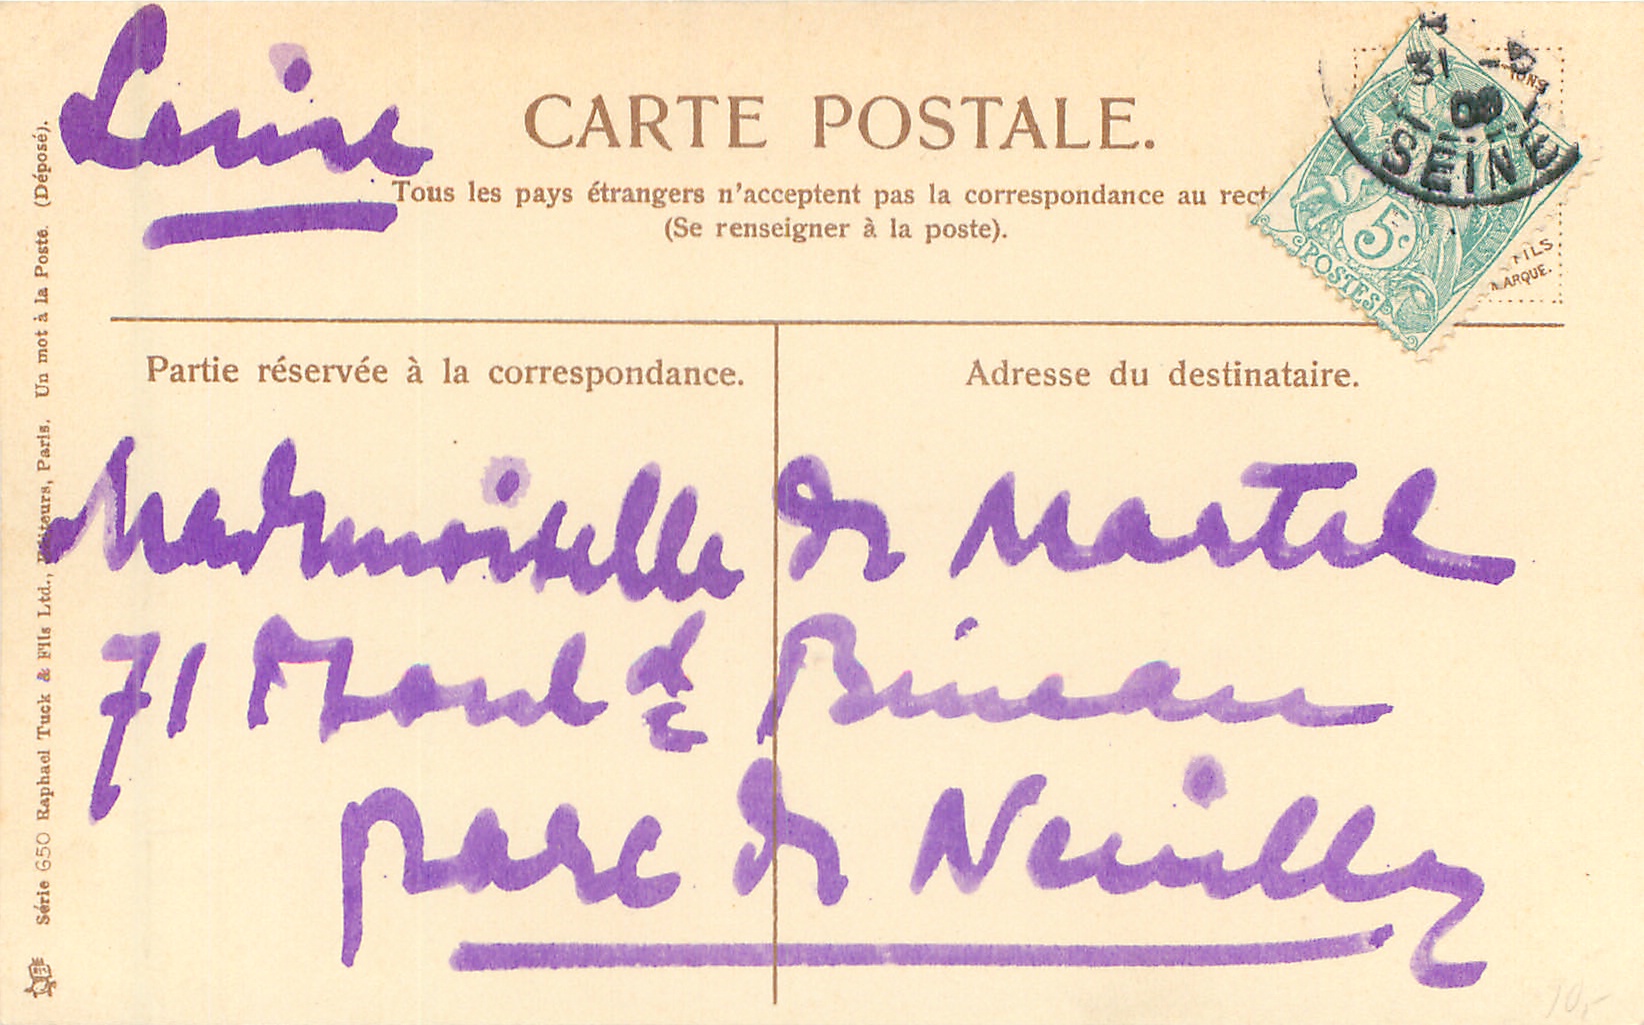 Seine
CARTE POSTALE.
Tous les pays étrangers n'acceptent pas la correspondance au rect
(Se renseigner à la poste).
SEINE
5c
POSTES
FILS
ARQUE.
Partie réservée à la correspondance.
Adresse du destinataire.
Mademoiselle de Martel
71 Boul d Bineau
parc de Neuilly
Série 650 Raphael Tuck & Fils Ltd., Editeurs, Paris. Un mot à la Poste. (Déposé).
10,-